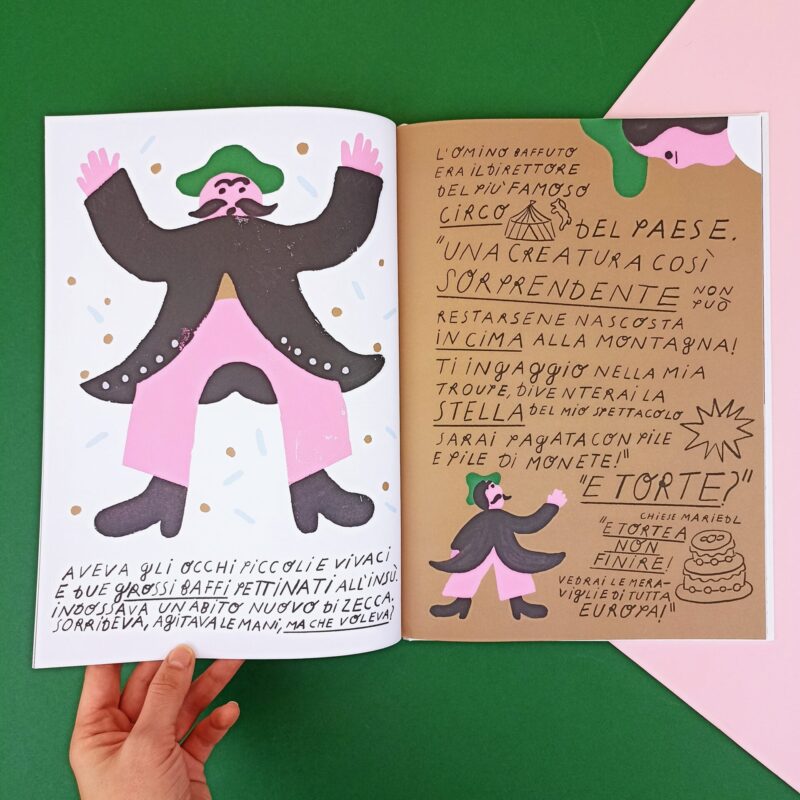 AVEVA GLI OCCHI PICCOLI E VIVACI
E DUE GROSSI BAFFI PETTINATI ALL'INSÙ.
INDOSSAVA UN ABITO NUOVO DI ZECCA.
SORRIDEVA, AGITAVA LE MANI, MA CHE VOLEVA?
L'OMINO BAFFUTO
ERA IL DIRETTORE
DEL PIÙ FAMOSO
CIRCO
DEL PAESE.
"UNA CREATURA COSÌ
SORPRENDENTE NON
PUÒ
RESTARSENE NASCOSTA
IN CIMA ALLA MONTAGNA!
TI INGAGGIO NELLA MIA
TROUPE, DIVENTERAI LA
STELLA DEL MIO SPETTACOLO
SARAI PAGATA CON PILE
E PILE DI MONETE!"
"E TORTE?"
CHIESE MARIEDL
"E TORTE A
NON
FINIRE!
VEDRAI LE MERA-
VIGLIE DI TUTTA
EUROPA!"